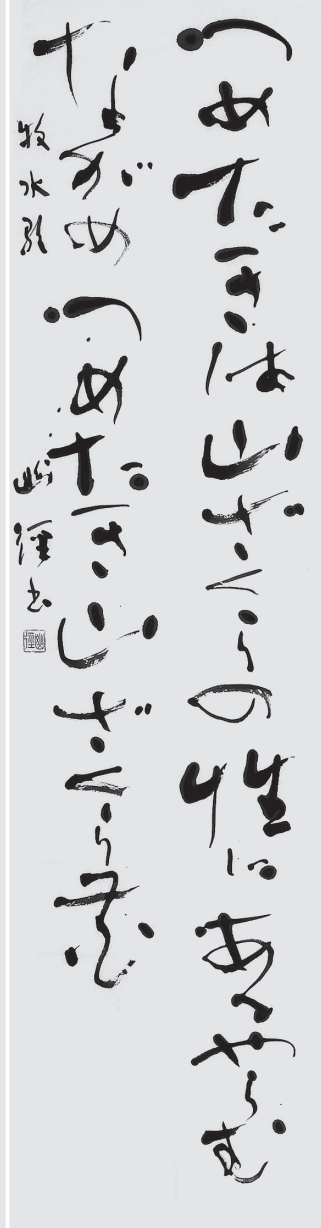 つめたきは山ざくらの性にあるやらむ
ながめつめたき山ざくら花
牧水歌
幽径書